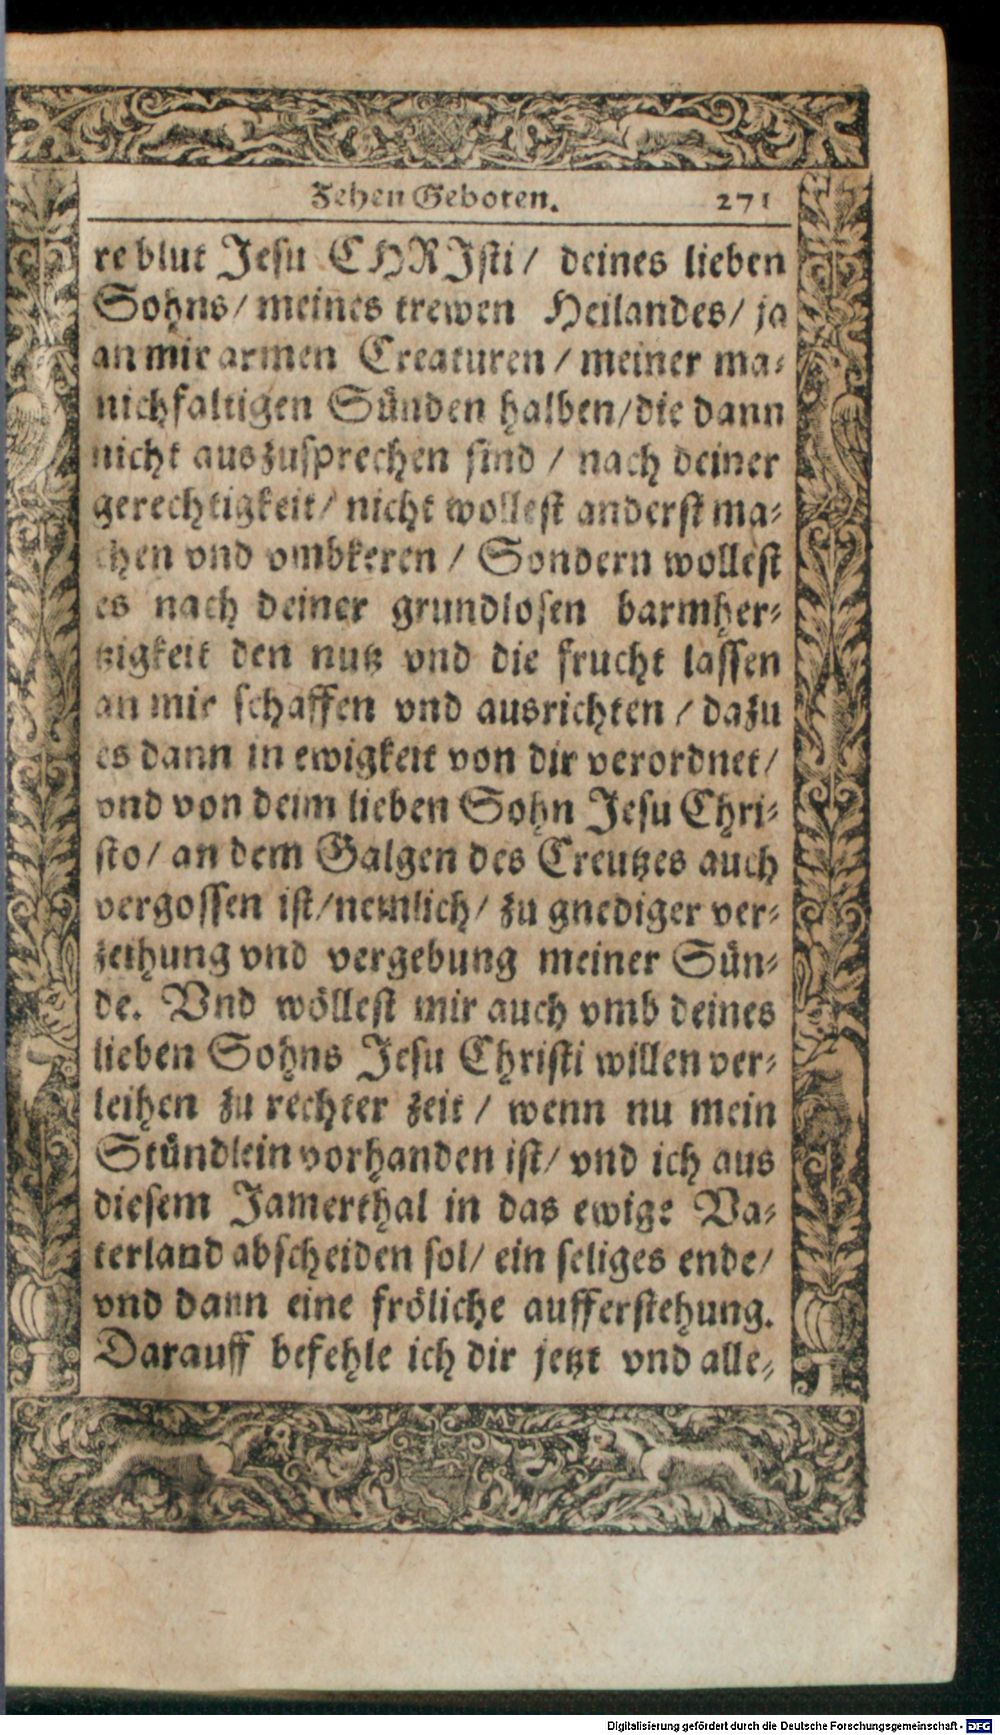 Zehen Geboten. 271
re blut Jesu CHRIsti / deines lieben
Sohns / meines trewen Heilandes / ja
an mir armen Creaturen / meiner ma-
nichfaltigen Sünden halben / die dann
nicht auszusprechen sind / nach deiner
gerechtigkeit / nicht wollest anderst ma-
chen vnd vmbkeren / Sondern wollest
es nach deiner grundlosen barmher-
tzigkeit den nutz vnd die frucht lassen
an mir schaffen vnd ausrichten / dazu
es dann in ewigkeit von dir verordnet /
vnd von deim lieben Sohn Jesu Chri-
sto / an dem Galgen des Creutzes auch
vergossen ist / nemlich / zu gnediger ver-
zeihung vnd vergebung meiner Sün-
de. Vnd wöllest mir auch vmb deines
lieben Sohns Jesu Christi willen ver-
leihen zu rechter zeit / wenn nu mein
Stündlein vorhanden ist / vnd ich aus
diesem Jamerthal in das ewige Va-
terland abscheiden sol / ein seliges ende /
vnd dann eine fröliche aufferstehung.
Darauff befehle ich dir jetzt vnd alle-
Digitalisierung gefördert durch die Deutsche Forschungsgemeinschaft - DFG